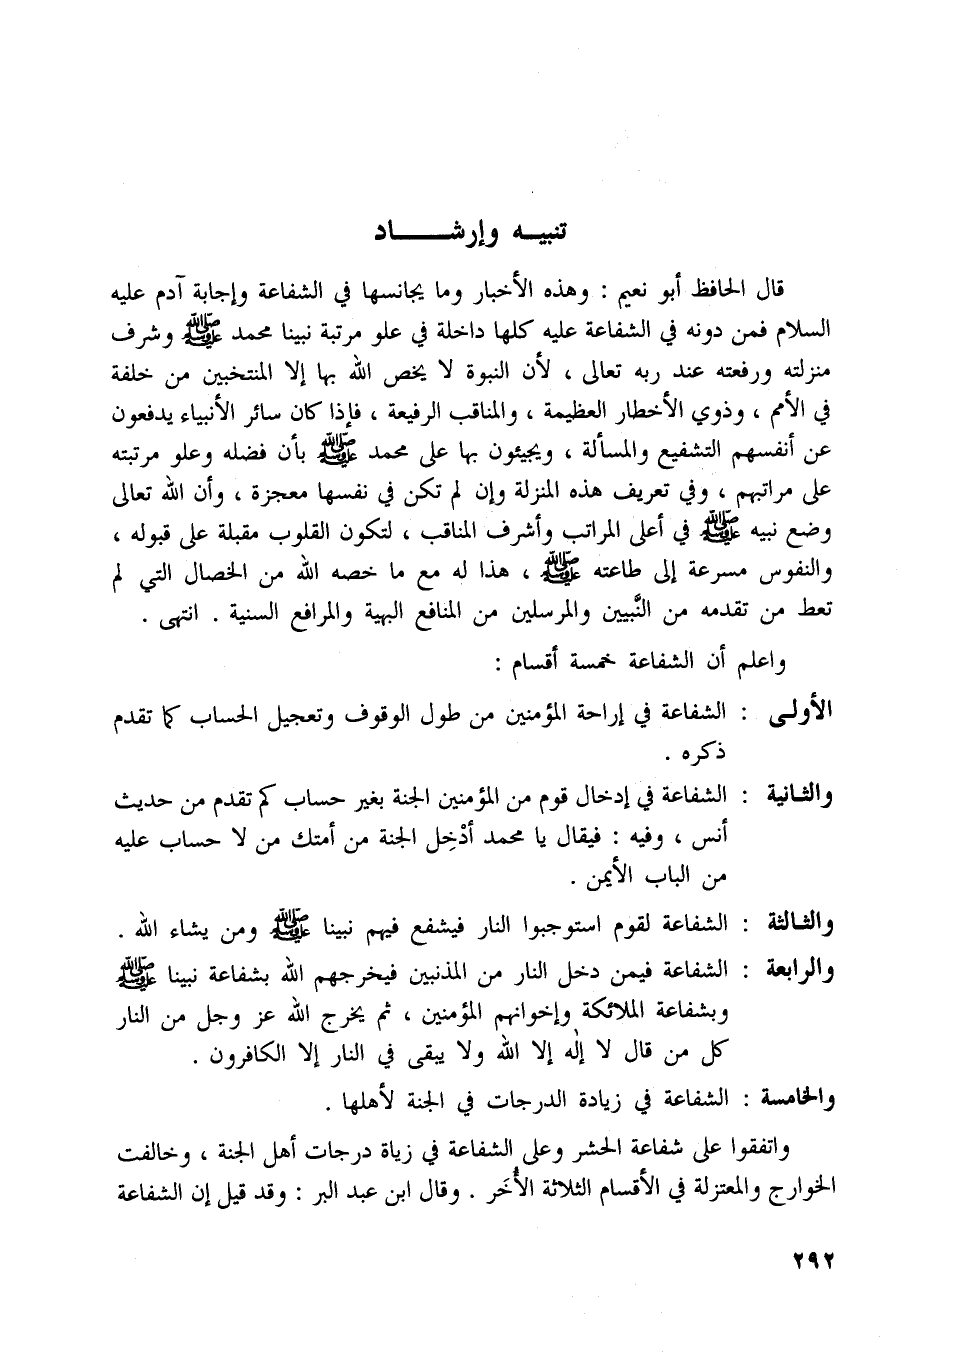 تنبيـــه وإرشـــــاد
قال الحافظ أبو نعيم : وهذه الأخبار وما يجانسها في الشفاعة وإجابة آدم عليه
السلام فمن دونه في الشفاعة عليه كلها داخلة في علو مرتبة نبينا محمد ﷺ وشرف
منزلته ورفعته عند ربه تعالى ، لأن النبوة لا يخص الله بها إلا المنتخبين من خلفة
في الأمم ، وذوي الأخطار العظيمة ، والمناقب الرفيعة ، فإذا كان سائر الأنبياء يدفعون
عن أنفسهم التشفيع والمسألة ، ويجيئون بها على محمد ﷺ بأن فضله وعلو مرتبته
على مراتبهم ، وفي تعريف هذه المنزلة وإن لم تكن في نفسها معجزة ، وأن الله تعالى
وضع نبيه ﷺ في أعلى المراتب وأشرف المناقب ، لتكون القلوب مقبلة على قبوله ،
والنفوس مسرعة إلى طاعته ﷺ ، هذا له مع ما خصه الله من الخصال التي لم
تعط من تقدمه من النَّبيين والمرسلين من المنافع البهية والمرافع السنية . انتهى .
واعلم أن الشفاعة خمسة أقسام :
الأولـى : الشفاعة في إراحة المؤمنين من طول الوقوف وتعجيل الحساب كما تقدم
ذكره .
والثـانية : الشفاعة في إدخال قوم من المؤمنين الجنة بغير حساب كم تقدم من حديث
أنس ، وفيه : فيقال يا محمد أدْخِل الجنة من أمتك من لا حساب عليه
من الباب الأيمن .
والثـالثة : الشفاعة لقوم استوجبوا النار فيشفع فيهم نبينا ﷺ ومن يشاء الله .
والرابعة : الشفاعة فيمن دخل النار من المذنبين فيخرجهم الله بشفاعة نبينا ﷺ
وبشفاعة الملائكة وإخوانهم المؤمنين ، ثم يخرج الله عز وجل من النار
كل من قال لا إلٰه إلا الله ولا يبقى في النار إلا الكافرون .
والخامسة : الشفاعة في زيادة الدرجات في الجنة لأهلها .
واتفقوا على شفاعة الحشر وعلى الشفاعة في زياة درجات أهل الجنة ، وخالفت
الخوارج والمعتزلة في الأقسام الثلاثة الأُخَر . وقال ابن عبد البر : وقد قيل إن الشفاعة
٢٩٢